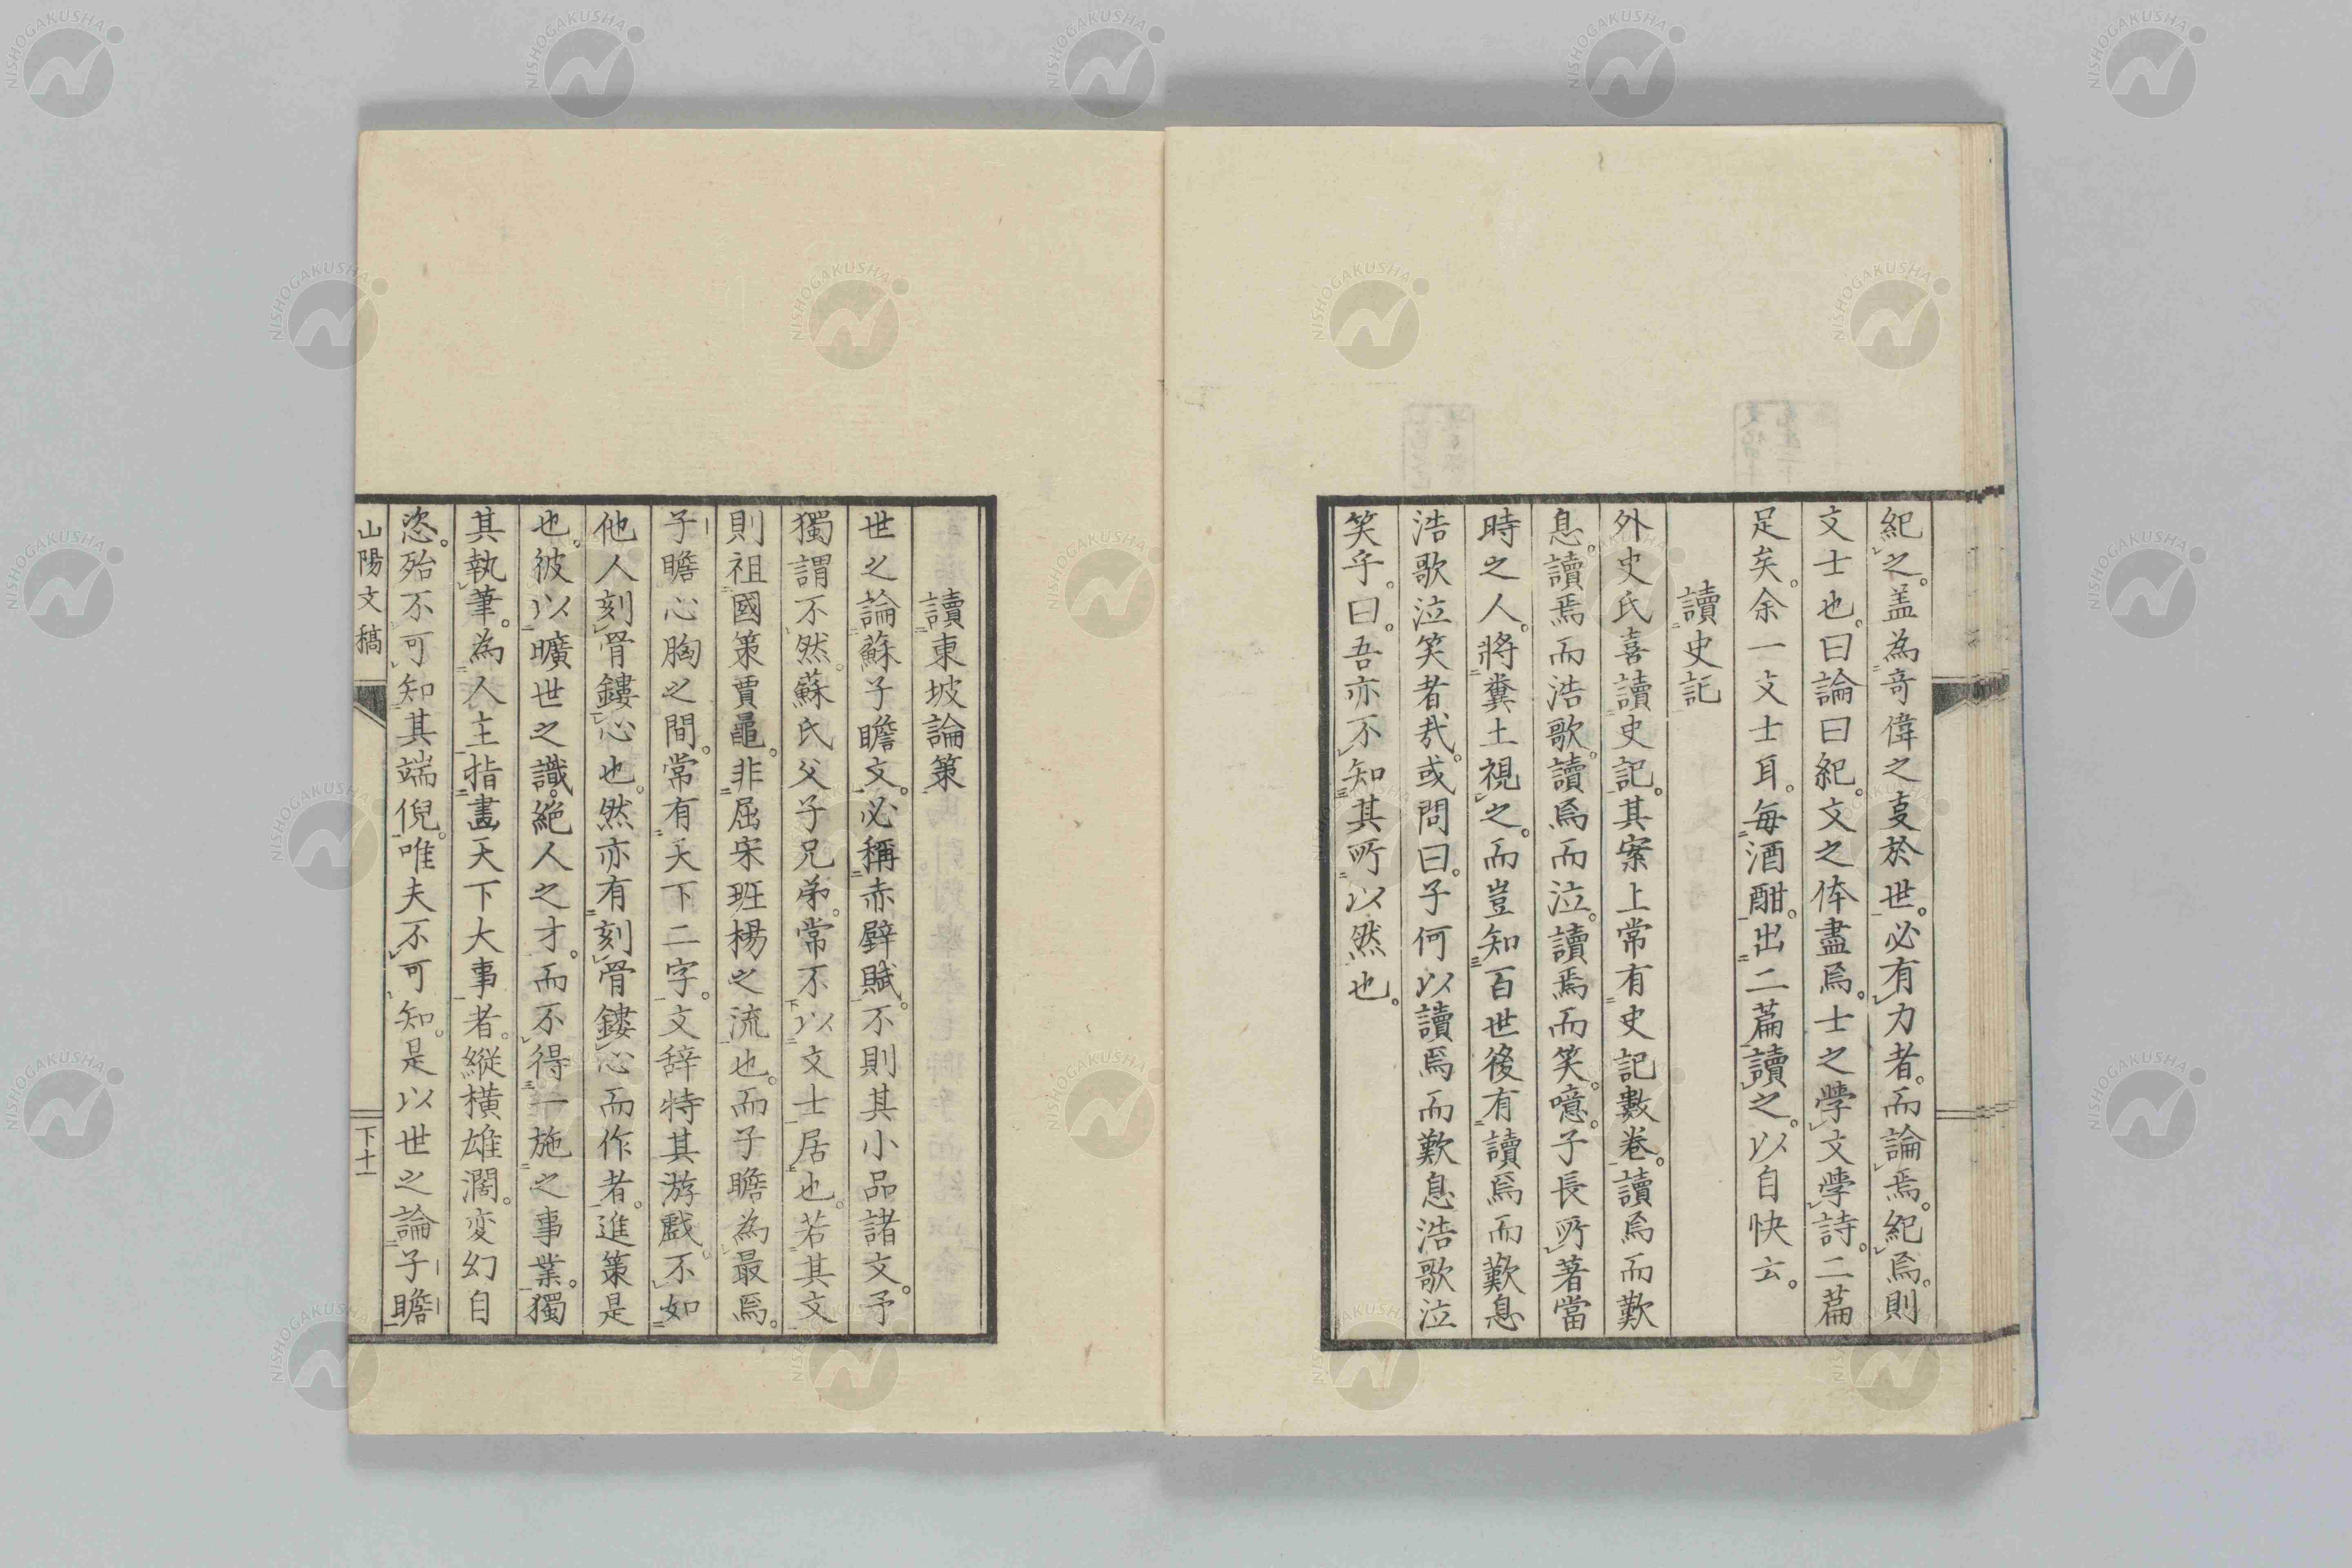 紀之。盖為竒偉之㕝於世。必有力者。而論焉。紀焉。則
文士也。曰論曰紀。文之体盡焉。士之學文學詩。二篇
足矣。余一文士耳。每酒酣。出二篇讀之。以自快云。
讀史記
外史氏喜讀史記。其案上常有史記數卷。讀焉而歎
息。讀焉而浩歌。讀焉而泣。讀焉而笑。噫。子長所著當
時之人。將糞土視之。而豈知百世後有讀焉而歎息
浩歌泣笑者哉。或問曰。子何以讀焉而歎息浩歌泣
笑乎。曰。吾亦不知其所以然也。
讀東坡論策
世之論蘇子瞻文。必稱赤壁賦。不則其小品諸文。予
獨謂不然。蘇氏父子兄弟。常不以文士居也。若其文
則祖國策賈鼂。非屈宋班楊之流也。而子瞻為最焉。
子瞻心胸之間。常有天下二字。文辞特其游戲。不如
他人刻骨鏤心也。然亦有刻骨鏤心而作者。進策是
也。彼以曠世之識。絶人之才。而不得一施之事業。獨
其執筆。為人主指畫天下大事者。縱横雄濶。変幻自
恣。殆不可知其端倪。唯夫不可知。是以世之論子瞻
山陽文稿
下十一
NISHOGAKUSHA